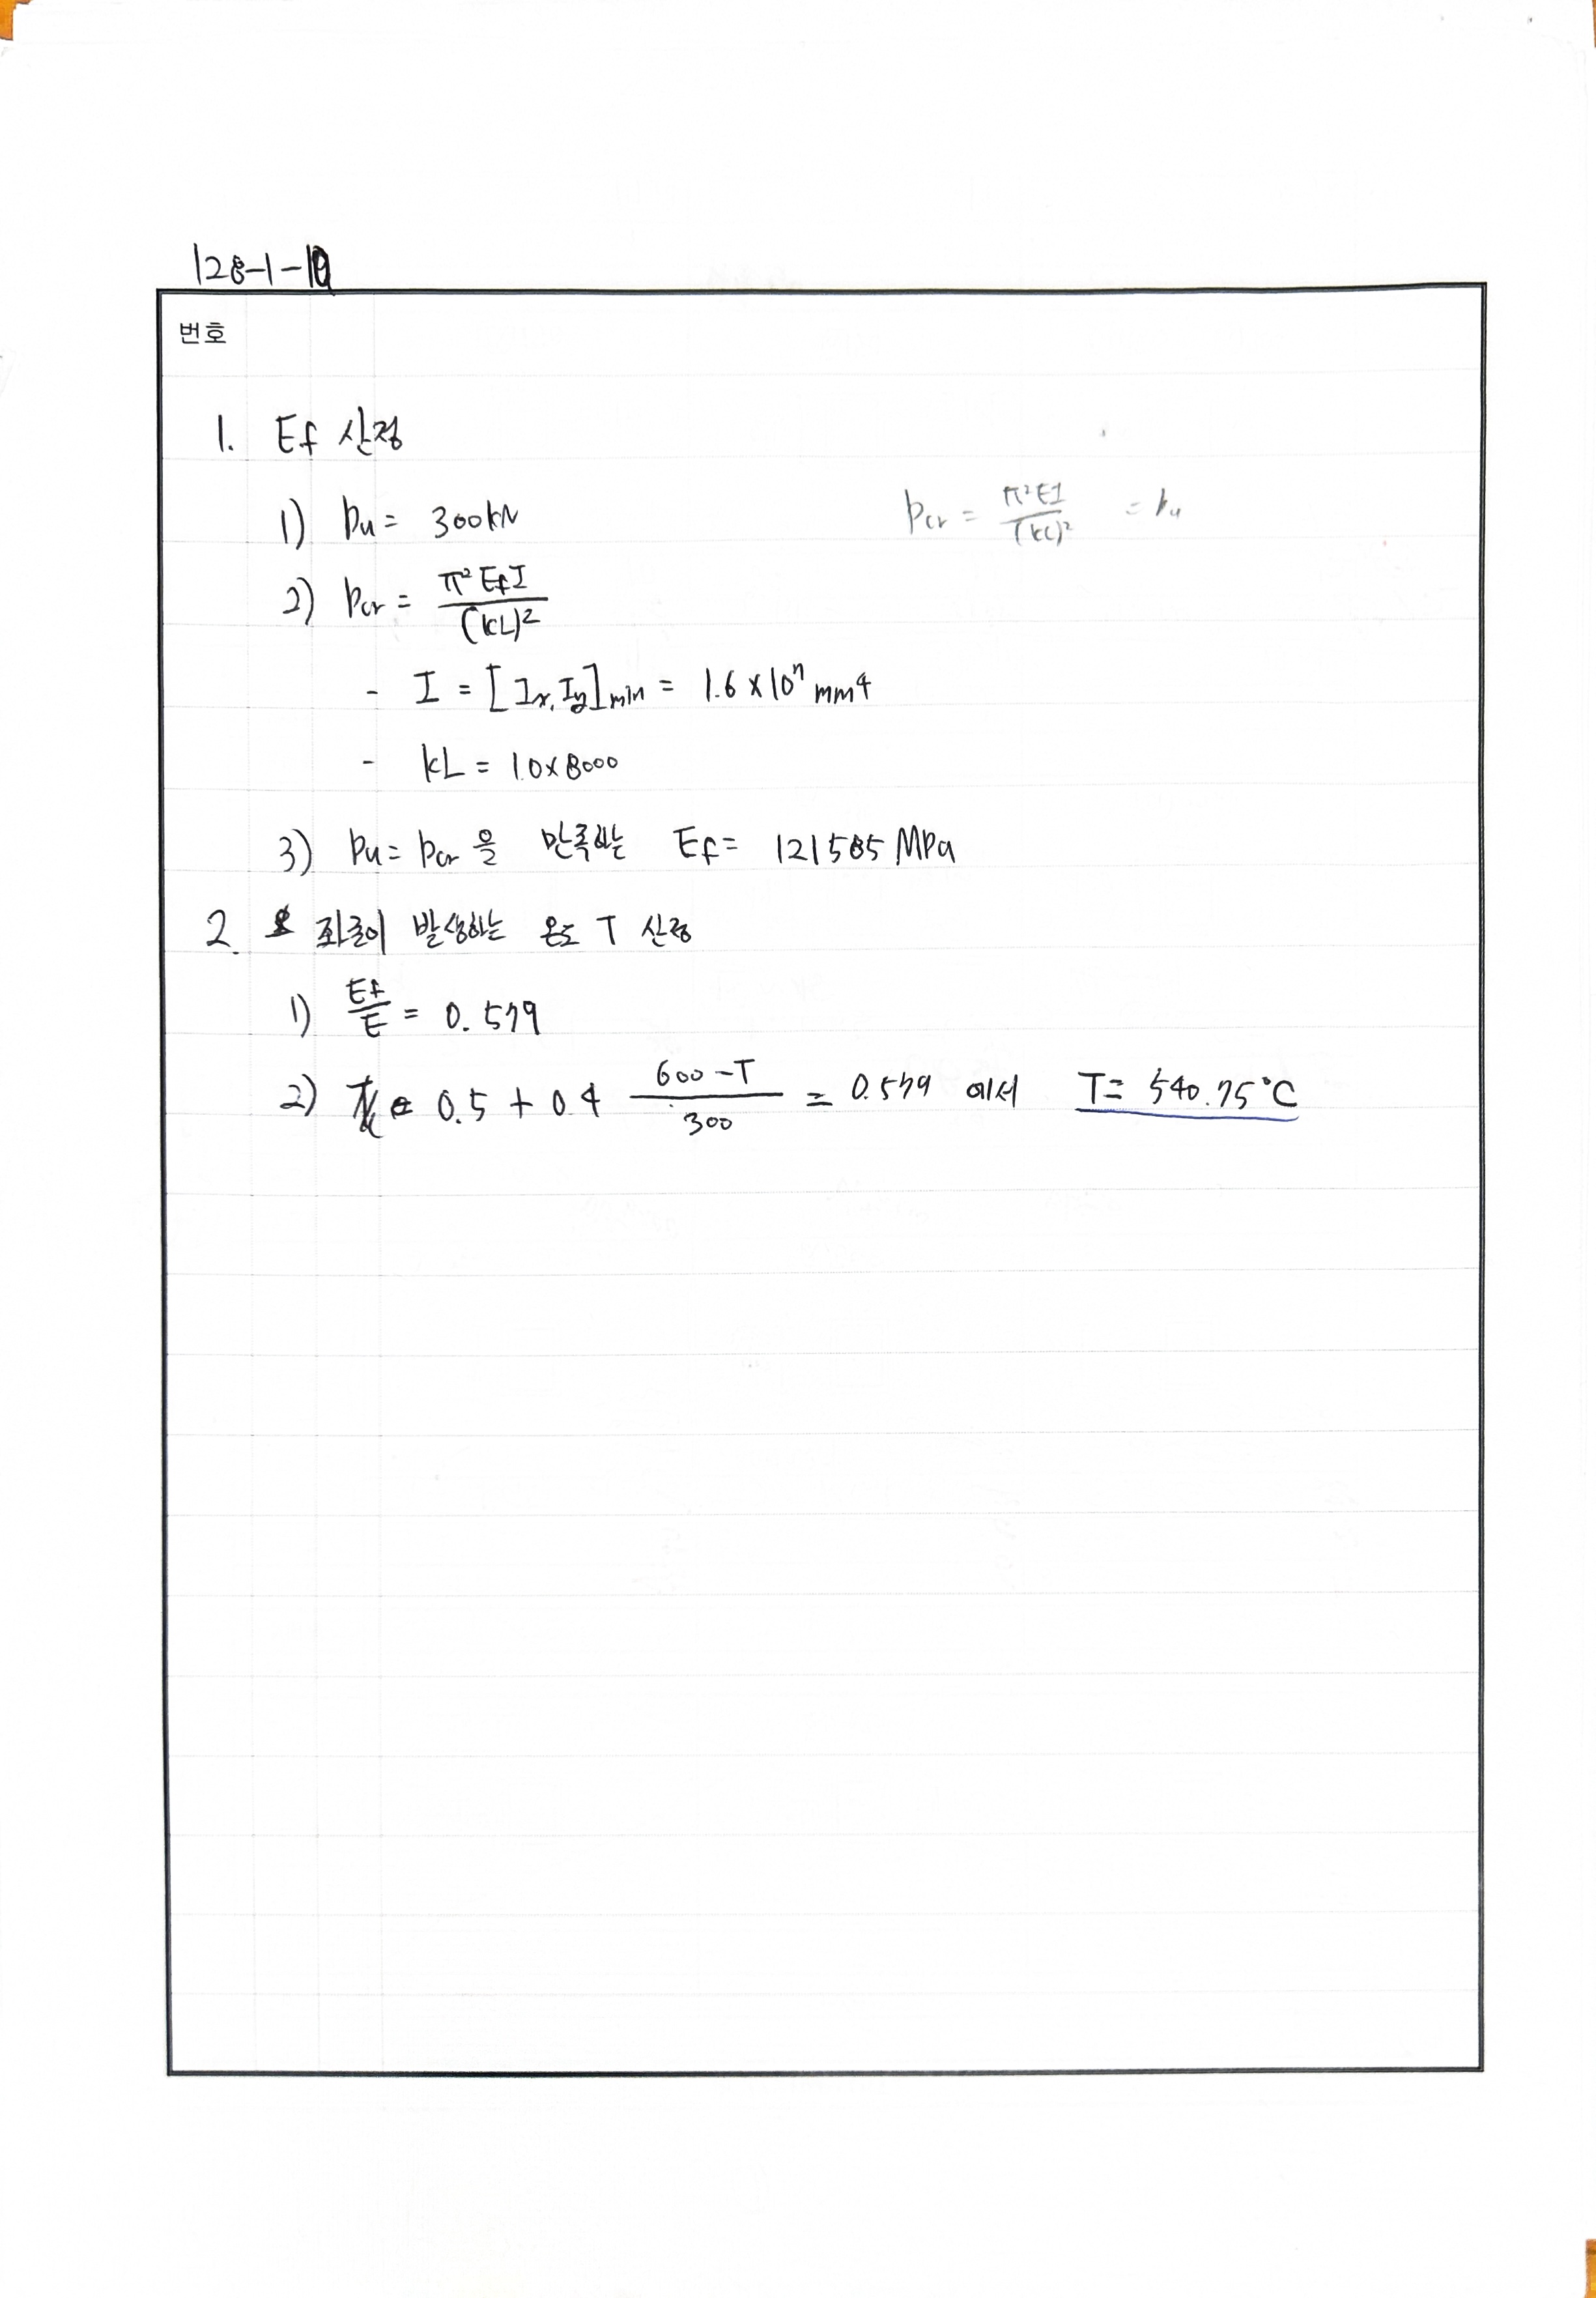 128-1-10
번호
1. Ef 산정
1) Pu = 300kN
Pcr = π²EI/(kL)² = Pu
2) Pcr = π²EfI/(kL)²
- I = [Ix, Iy]min = 1.6×10⁷ mm4
- kL = 1.0×8000
3) Pu = Pcr 을 만족하는 Ef = 121585 MPa
2. 좌굴이 발생하는 온도 T 산정
1) Ef/E = 0.579
2) 0.5 + 0.4 600-T/300 = 0.579 에서 T = 540.75°C